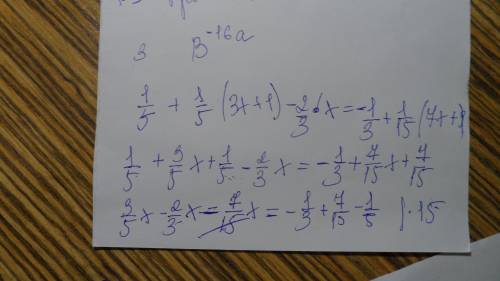 3 B^-16a
1/5 + 1/5 (3x+1) - 2/3 · x = -1/3 + 1/15 (7x+1)
1/5 + 3/5 x + 1/5 - 2/3 x = -1/3 + 7/15 x + 7/15
3/5 x - 2/3 x - 7/15 x = -1/3 + 7/15 - 1/5 | · 15